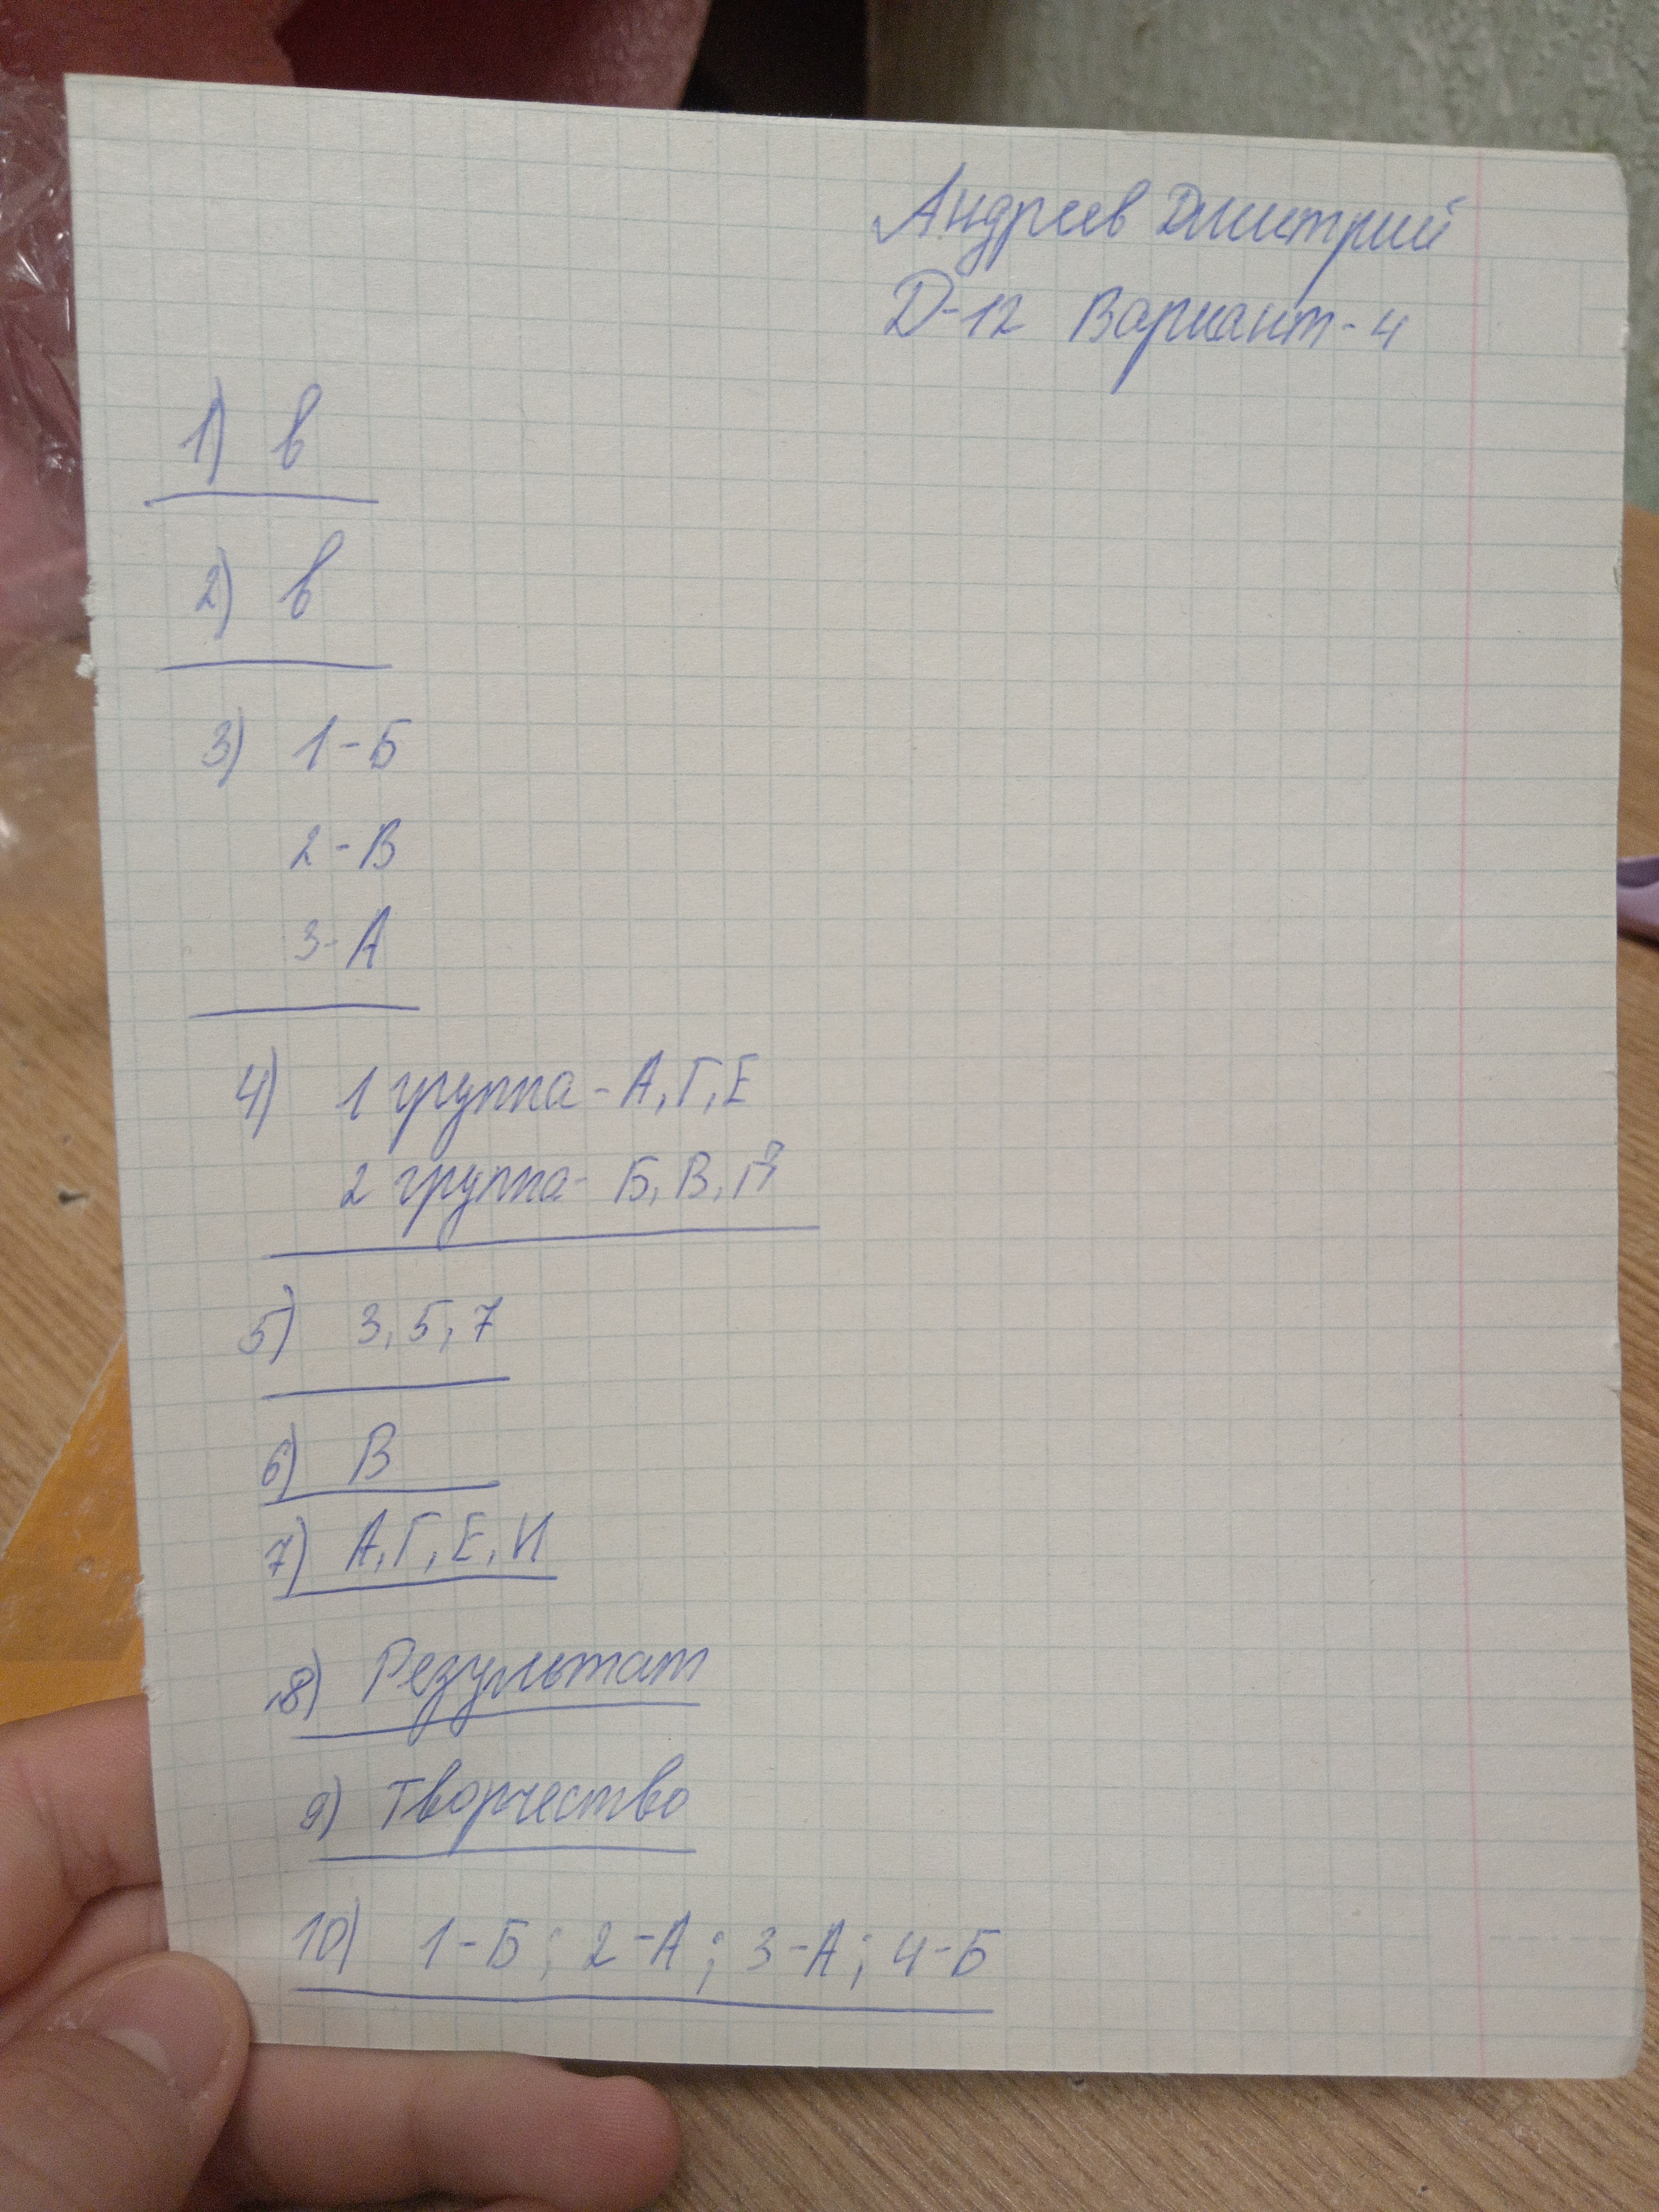 Андреев Дмитрий
Д-12 Вариант-4
1) в
2) в
3) 1-Б
2-В
3-А
4) 1 группа-А,Г,Е
2 группа- Б,В,
5) 3,5,7
6) В
7) А,Г,Е,И
8) Результат
9) Творчество
10) 1-Б; 2-А; 3-А; 4-Б